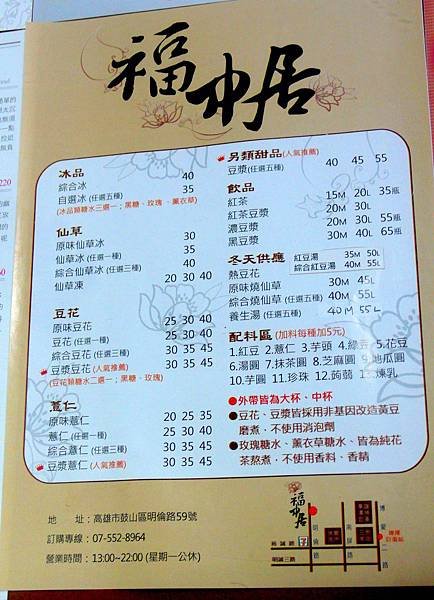 福水居
冰品
綜合冰 40
自選冰 (任選五種) 35
(冰品類糖水三選一；黑糖、玫瑰、薰衣草)
仙草
原味仙草冰 30
仙草冰 (任選一種) 35
綜合仙草冰 (任選三種) 40
仙草凍 20 30 40
豆花
原味豆花 25 30 40
豆花 (任選一種) 25 30 40
綜合豆花 (任選三種) 30 35 45
豆漿豆花 (人氣推薦) 30 35 45
(豆花類糖水二選一；黑糖、玫瑰)
薏仁
原味薏仁 20 25 35
薏仁 (任選一種) 25 30 40
綜合薏仁 (任選三種) 30 35 45
豆漿薏仁 (人氣推薦) 30 35 45
另類甜品(人氣推薦)
豆漿(任選五種) 40 45 55
飲品
紅茶 15M 20L 35瓶
紅茶豆漿 20M 30L
濃豆漿 20M 30L 55瓶
黑豆漿 30M 40L 65瓶
冬天供應
紅豆湯 35M 50L
綜合紅豆湯 40M 55L
熱豆花
原味燒仙草 30M 45L
綜合燒仙草 (任選五種) 40M 55L
養生湯 (任選五種) 40M 55L
配料區 (加料每種加5元)
1.紅豆 2.薏仁 3.芋頭 4.綠豆 5.花豆
6.湯圓 7.抹茶圓 8.芝麻圓 9.地瓜圓
10.芋圓 11.珍珠 12.蒟蒻 13.煉乳
●外帶皆為大杯、中杯
●豆花、豆漿皆採用非基因改造黃豆
磨煮，不使用消泡劑
●玫瑰糖水、薰衣草糖水、皆為純花
茶熬煮，不使用香料、香精
地 址：高雄市鼓山區明倫路59號
訂購專線：07-552-8964
營業時間：13:00~22:00 (星期一公休)
福水居
明倫路
裕誠路
明誠三路